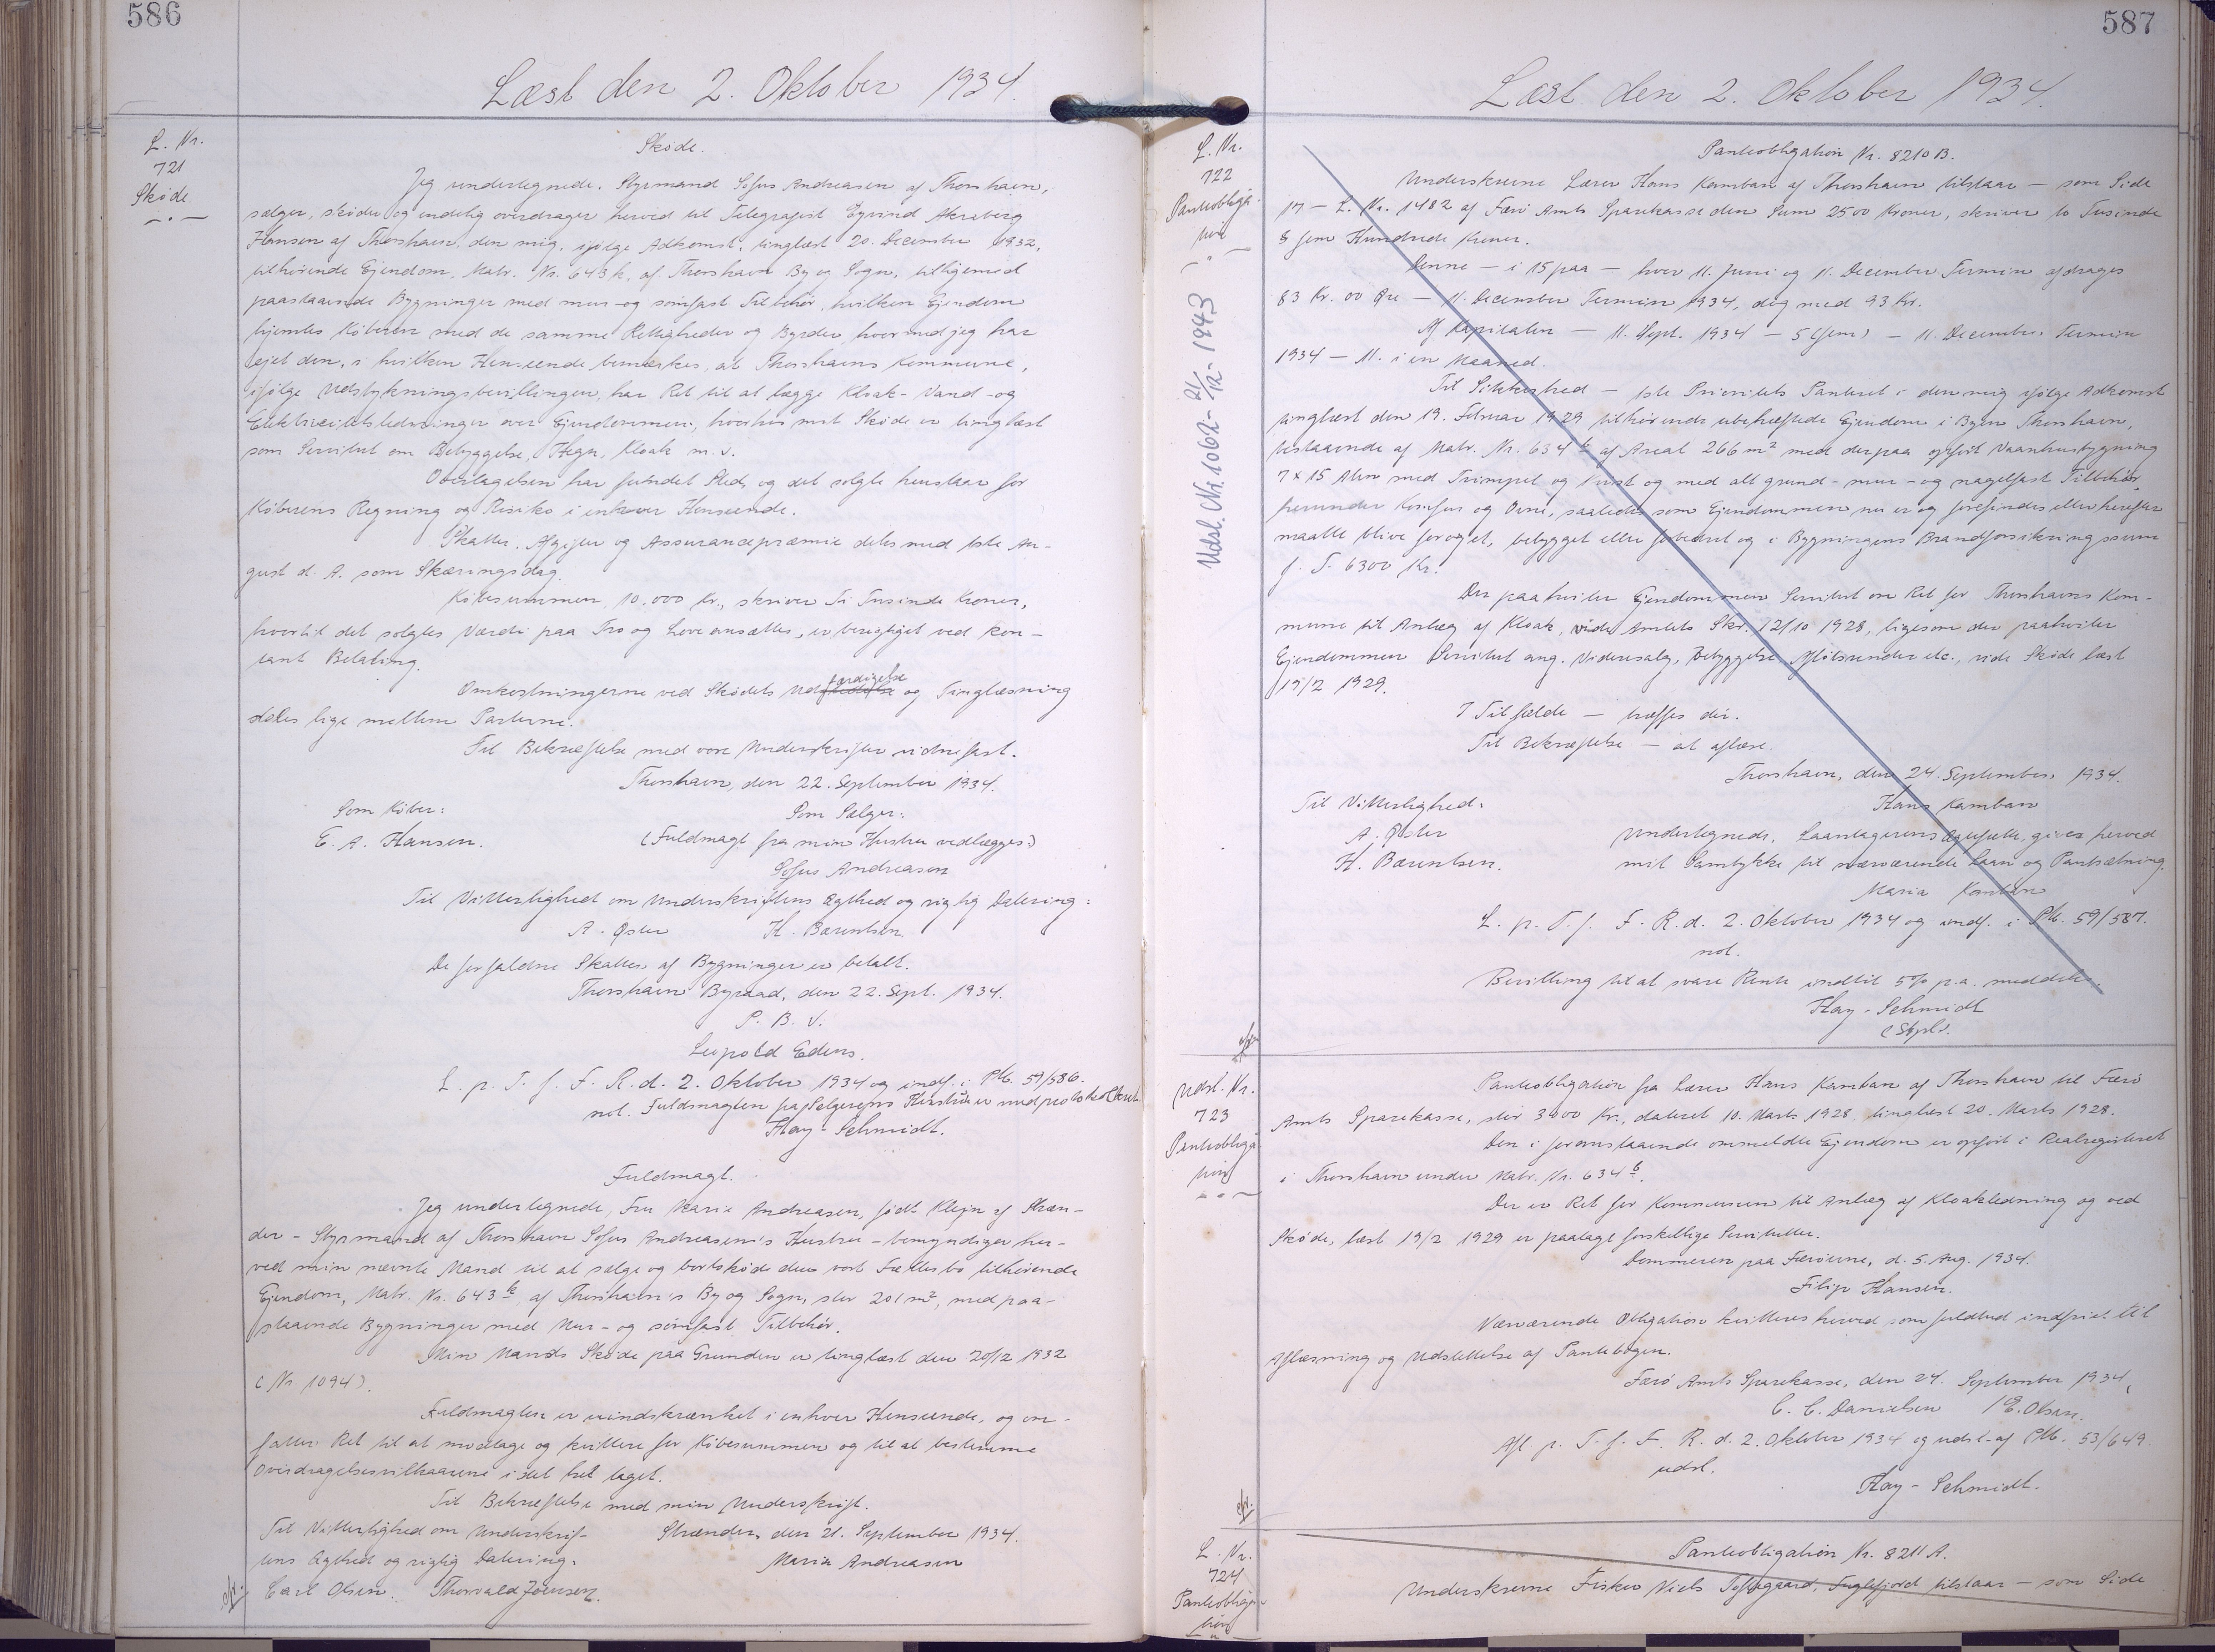 586
Læst den 2. Oktober 1934.
L. Nr.
721
Skøde
Skøde.
Jeg undertegnede, Styrmand Sofus Andreasen af Thorshavn,
sælger, skøder og endelig overdrager herved til Telegrafist Eyvind Akraberg
Hansen af Thorshavn, den mig, ifølge Adkomst, tinglæst 20. December 1932,
tilhørende Ejendom, Matr. Nr. 643 k, af Thorshavn By og Sogn, tilligemed
paastaaende Bygninger med mur- og sømfast Tilbehør, hvilken Ejendom
hjemles Køberen med de samme Rettigheder og Byrder, hvormed jeg har
ejet den, i hvilken Henseende bemærkes, at Thorshavns Kommune,
ifølge Udstykningsbevillingen, har Ret til at lægge Kloak- Vand- og
Elektricitetsledninger over Ejendommen, hvorhos mit Skøde er tinglæst
som Servitut om Bebyggelse, Hegn, Kloak m. v.
Overtagelsen har fundet Sted, og det solgte henstaar for
Køberens Regning og Risiko i enhver Henseende.
Skatter, Afgifter og Assurancepræmie deles med 1ste Au-
gust d. A. som Skæringsdag.
Købesummen, 10,000 Kr., skriver Ti Tusinde Kroner,
hvortil det solgtes Værdi paa Tro og Love ansættes, er berigtiget ved kon-
tant Betaling.
Omkostningerne ved Skødets Udfærdigelse og Tinglæsning
deles lige mellem Parterne.
Til Bekræftelse med vore Underskrifter vidnefast.
Thorshavn, den 22. September 1934.
Som Køber: Som Sælger:
E. A. Hansen. (Fuldmagt fra min Hustru vedlægges)
Sofus Andreasen
Til Vitterlighed om Underskriftens Ægthed og rigtig Datering:
A. Øster H. Bærentsen.
De forfaldne Skatter af Bygninger er betalt.
Thorshavn Byraad, den 22. Sept. 1934.
P. B. V.
Leopold Edens.
L. p. T. f. F. R. d. 2. Oktober 1934 og indf. i Ptb. 59/586.
not. Fuldmagten fra Sælgerens Hustru er medprotokolleret.
Hay-Schmidt.
Fuldmagt.
Jeg undertegnede, Fru Maria Andreasen, født Klejn af Stræn-
der - Styrmand af Thorshavn Sofus Andreasen's Hustru - bemyndiger her-
ved min nævnte Mand til at sælge og bortskøde den vort Fællesbo tilhørende
Ejendom, Matr. Nr. 643 k af Thorshavn's By og Sogn, stor 201 m², med paa-
staaende Bygninger med Mur- og sømfast Tilbehør.
Min Mands Skøde paa Grunden er tinglæst den 20/12 1932
(Nr. 1094).
Fuldmagten er uindskrænket i enhver Henseende, og om-
fatter Ret til at modtage og kvittere for Købesummen og til at bestemme
Overdragelsesvilkaarene i det hele taget.
Til Bekræftelse med min Underskrift.
Til Vitterlighed om Underskrif- Strænder, den 21. September 1934.
tens Ægthed og rigtig Datering: Maria Andreasen
Carl Olsen. Thorvald Joensen.
587
Læst den 2. Oktober 1934.
L. Nr.
722
Panteobliga-
tion
Udsl. Nr. 1062 - 21/12 - 1943
Panteobligation Nr. 8210 B.
Underskrevne Lærer Hans Kamban af Thorshavn tilstaar — som Side
17 — L. Nr. 1482 af Færø Amts Sparekasse den Sum 2500 Kroner, skriver to Tusinde
& fem Hundrede Kroner.
Denne — i 15 paa — hver 11. Juni og 11. December Termin afdrages
83 Kr. 00 Øre — 11. December Termin 1934, dog med 93 Kr.
Af Kapitalen — 11. Sept. 1934 — 5 (fem) — 11. December Termin
1934 — 11. i en Maaned.
Til Sikkerhed — 1ste Prioritets Panteret i den mig ifølge Adkomst
tinglæst den 19. Februar 1929 tilhørende ubehæftede Ejendom i Byen Thorshavn,
bestaaende af Matr. Nr. 634 b af Areal 266 m² med derpaa opført Vaaningshusbygning
7 x 15 Alen med Trimpel og Kvist og med alt grund- mur- og nagelfast Tilbehør,
herunder Komfur og Ovne, saaledes som Ejendommen nu er og forefindes eller herefter
maatte blive forøget, bebygget eller forbedret og i Bygningens Brandforsikringssum
f. T. 6300 Kr.
Der paahviler Ejendommen Servitut om Ret for Thorshavns Kom-
mune til Anlæg af Kloak, vide Amtets Skr. 12/10 1928, ligesom der paahviler
Ejendommen Servitut ang. Videresalg, Bebyggelse, Afløbsrender etc., vide Skøde læst
19/2 1929.
I Tilfælde — træffes der.
Til Bekræftelse — at aflæse.
Thorshavn, den 24. September 1934.
Til Vitterlighed: Hans Kamban
A. Øster Undertegnede, Laantagerens Ægtefælle, giver herved
H. Bærentsen. mit Samtykke til nærværende Laan og Pantsætning.
Maria Kamban
L. p. T. f. F. R. d. 2. Oktober 1934 og indf. i Ptb. 59/587.
not.
Bevilling til at svare Rente indtil 5% p.a. meddeles.
Hay-Schmidt
Udsl. Nr.
723
Panteobliga-
tion
Panteobligation fra Lærer Hans Kamban af Thorshavn til Færø
Amts Sparekasse, stor 3000 Kr., dateret 10. Marts 1928, tinglæst 20. Marts 1928.
Den i foranstaaende ommeldte Ejendom er opført i Realregisteret
i Thorshavn under Matr. Nr. 634 b.
Der er Ret for Kommunen til Anlæg af Kloakledning og ved
Skøde, læst 19/2 1929 er paalagt forskellige Servitutter.
Dommeren paa Færøerne, d. 5. Aug. 1934.
Filip Hansen.
Nærværende Obligation kvitteres herved som fuldtud indfriet til
Aflæsning og Udslettelse af Pantebogen.
Færø Amts Sparekasse, den 24. September 1934,
C. C. Danielsen / E. Olsen.
Afl. p. T. f. F. R. d. 2. Oktober 1934 og udsl. af Ptb. 53/649.
udsl.
Hay-Schmidt.
L. Nr.
724
Panteobliga-
tion
Panteobligation Nr. 8211 A.
Underskrevne Fisker Niels Toftegaard, Fuglefjord tilstaar — som Side